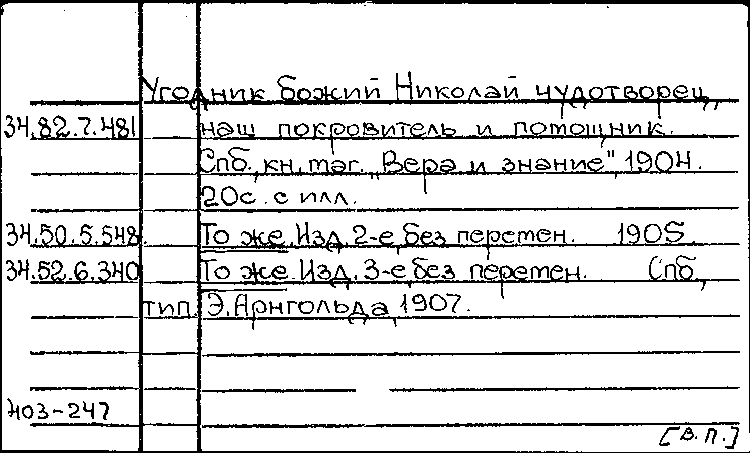 Угодник божий Николай чудотворец,
34.82.7.481 наш покровитель и помощник.
Спб., кн. маг. „Вера и знание", 1904.
20с. с илл.
34.50.5.548 То же. Изд. 2-е, без перемен. 1905.
34.52.6.340 То же. Изд. 3-е, без перемен. Спб.,
тип. Э. Арнгольда, 1907.
Н03-247
[В.П.]